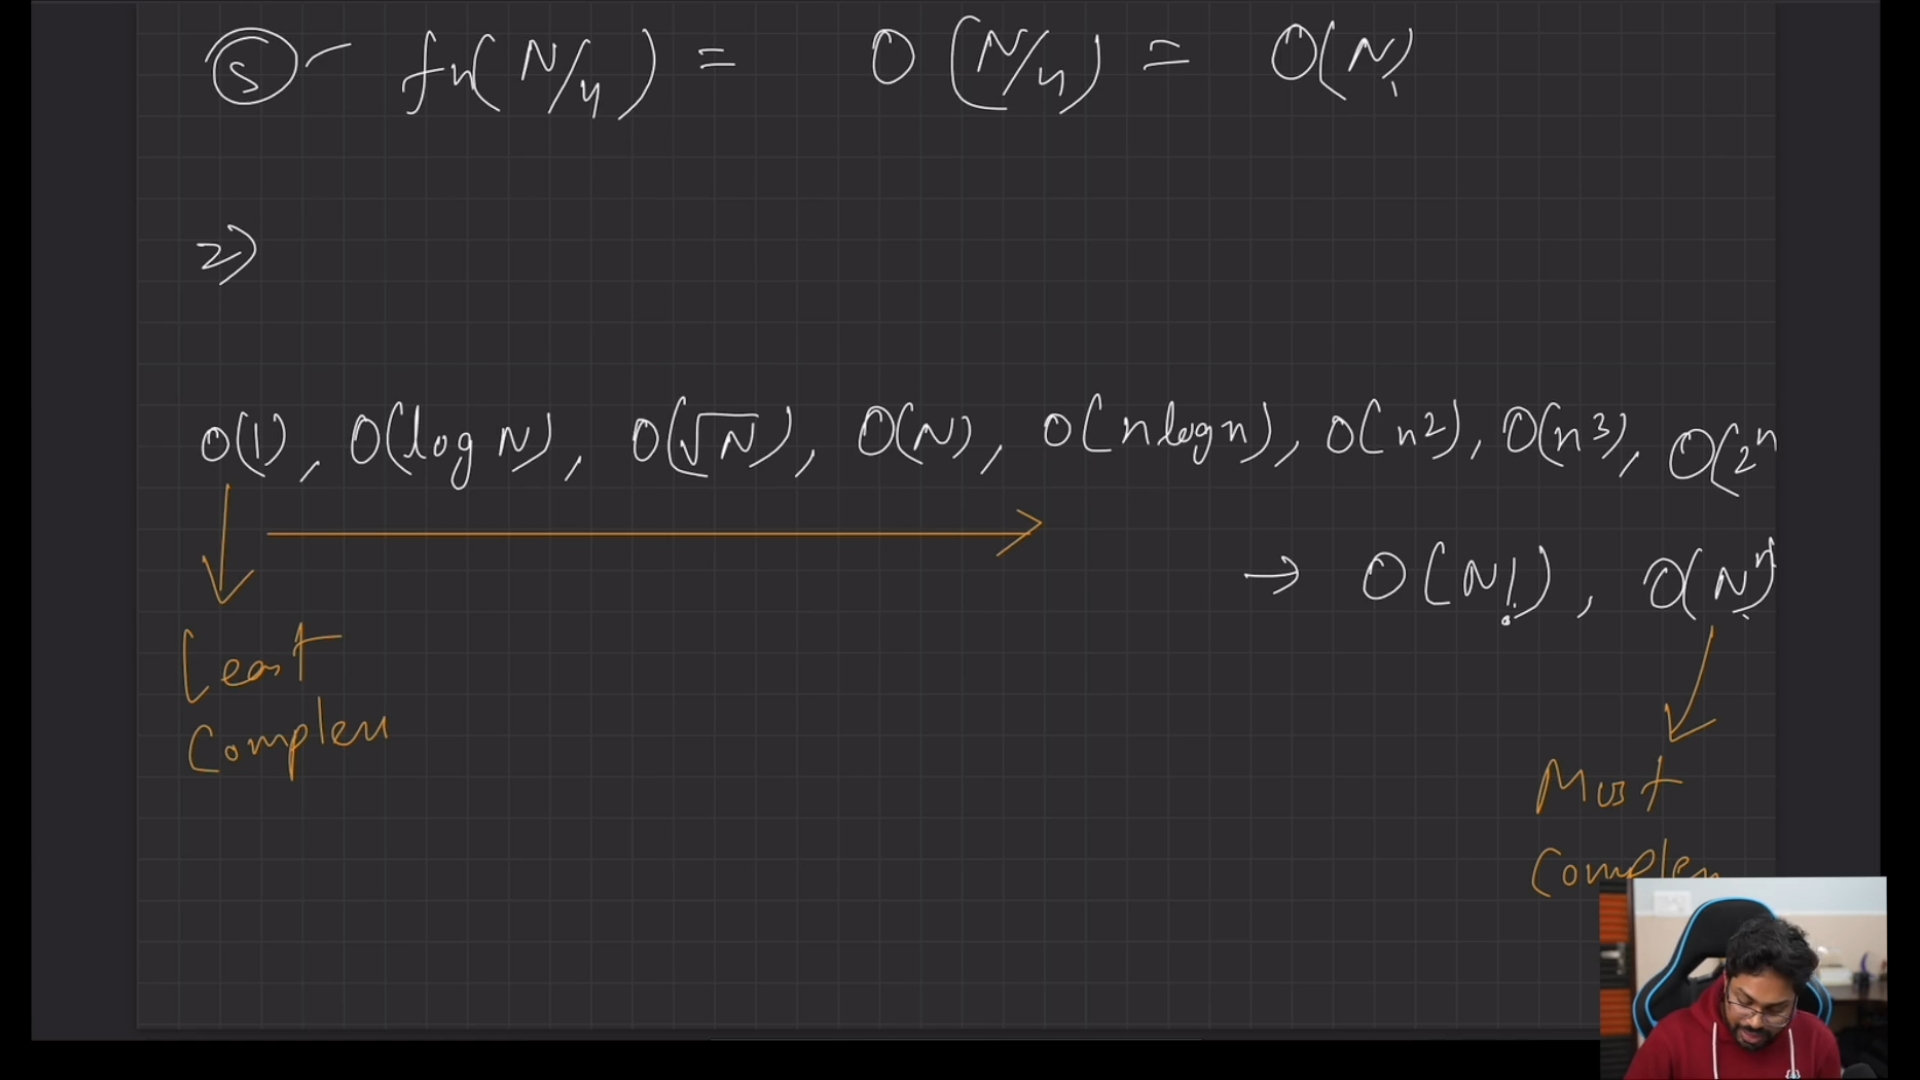 ⑤ - fn(N/4) = O(N/4) = O(N)
2)
O(1), O(log N), O(√N), O(N), O(n log n), O(n2), O(n3), O(2^n
→ O(N!), O(N^n)
Least
Complex
Most
Complex